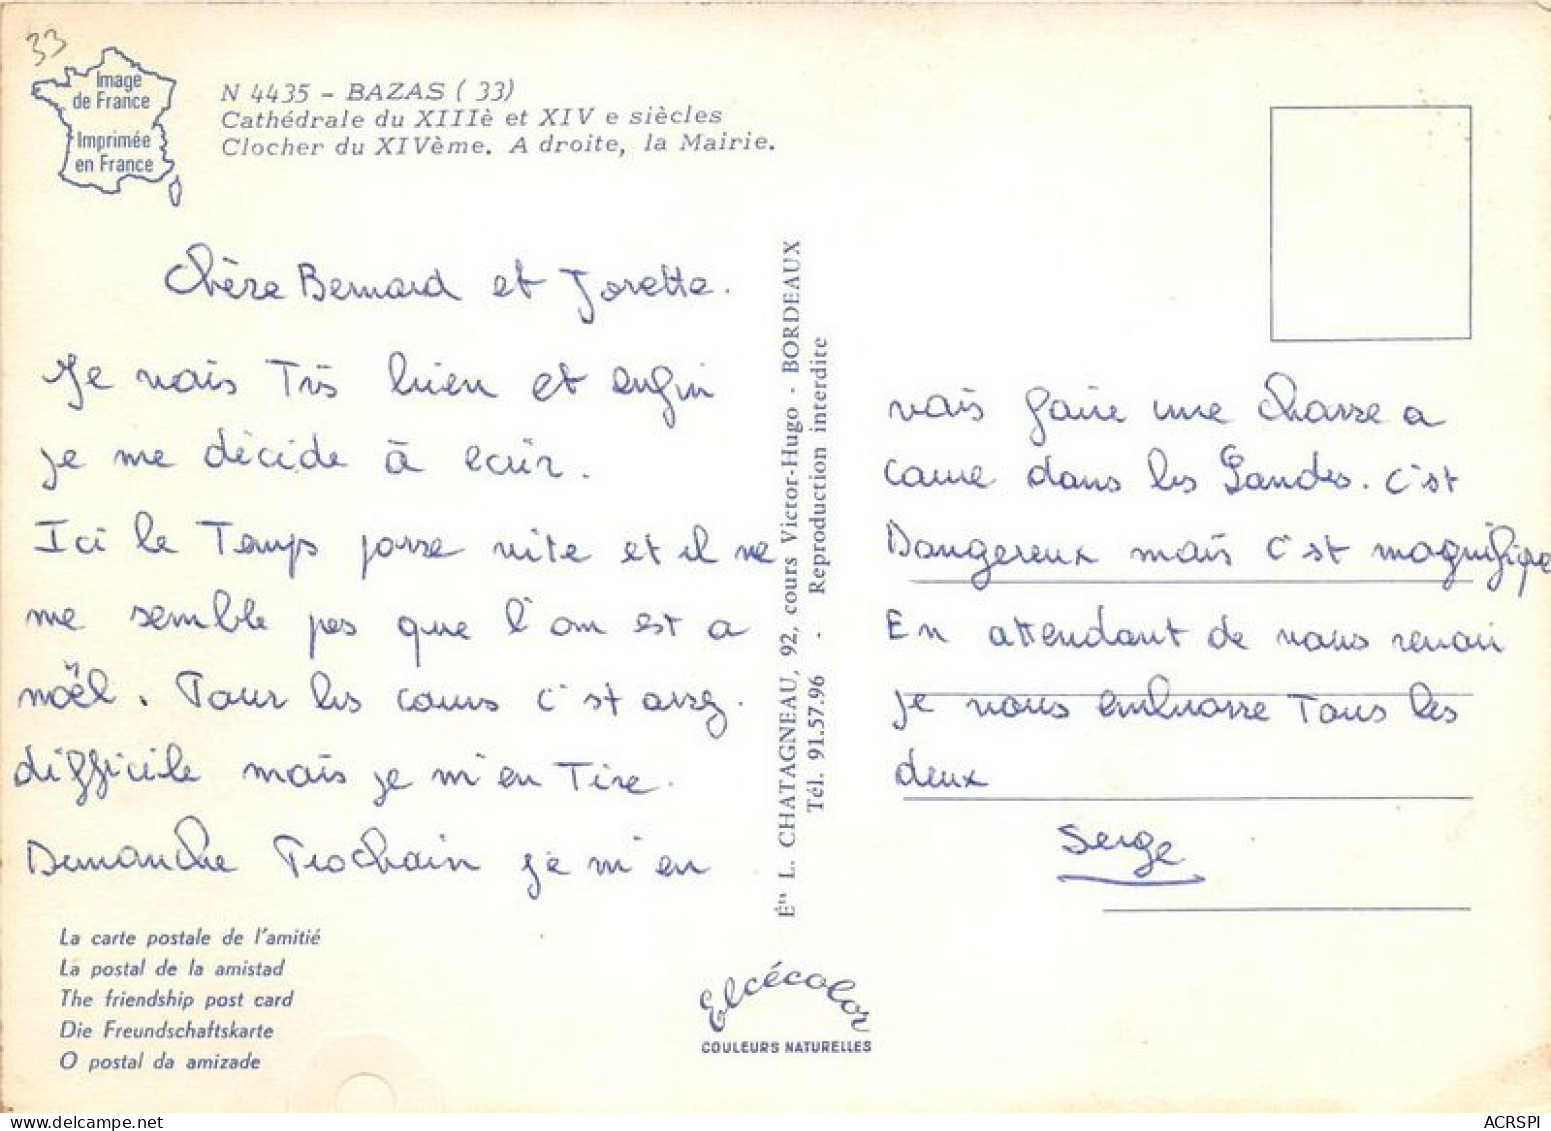 33
Image
de France
Imprimée
en France
N 4435 - BAZAS ( 33)
Cathédrale du XIIIè et XIV e siècles
Clocher du XIVème. A droite, la Mairie.
Chère Bernard et Jorette.
Je vais Tris bien et enfin
je me décide à ecrir.
Ici le Temps passe vite et il ne
me semble pas que l'on est a
noël. Pour les cours c'st assez.
difficile mais je m'en Tire.
Dimanche Prochain je m'en
vais faire une chasse a
courre dans les Landes. C'st
Dangereux mais c'st magnifique
En attendant de vous revoir
je vous embrasse Tous les
deux
Serge
Éts L. CHATAGNEAU, 92, cours Victor-Hugo - BORDEAUX
Tél. 91.57.96 - Reproduction interdite
La carte postale de l'amitié
La postal de la amistad
The friendship post card
Die Freundschaftskarte
O postal da amizade
Elcécolor
COULEURS NATURELLES
ACRSPI